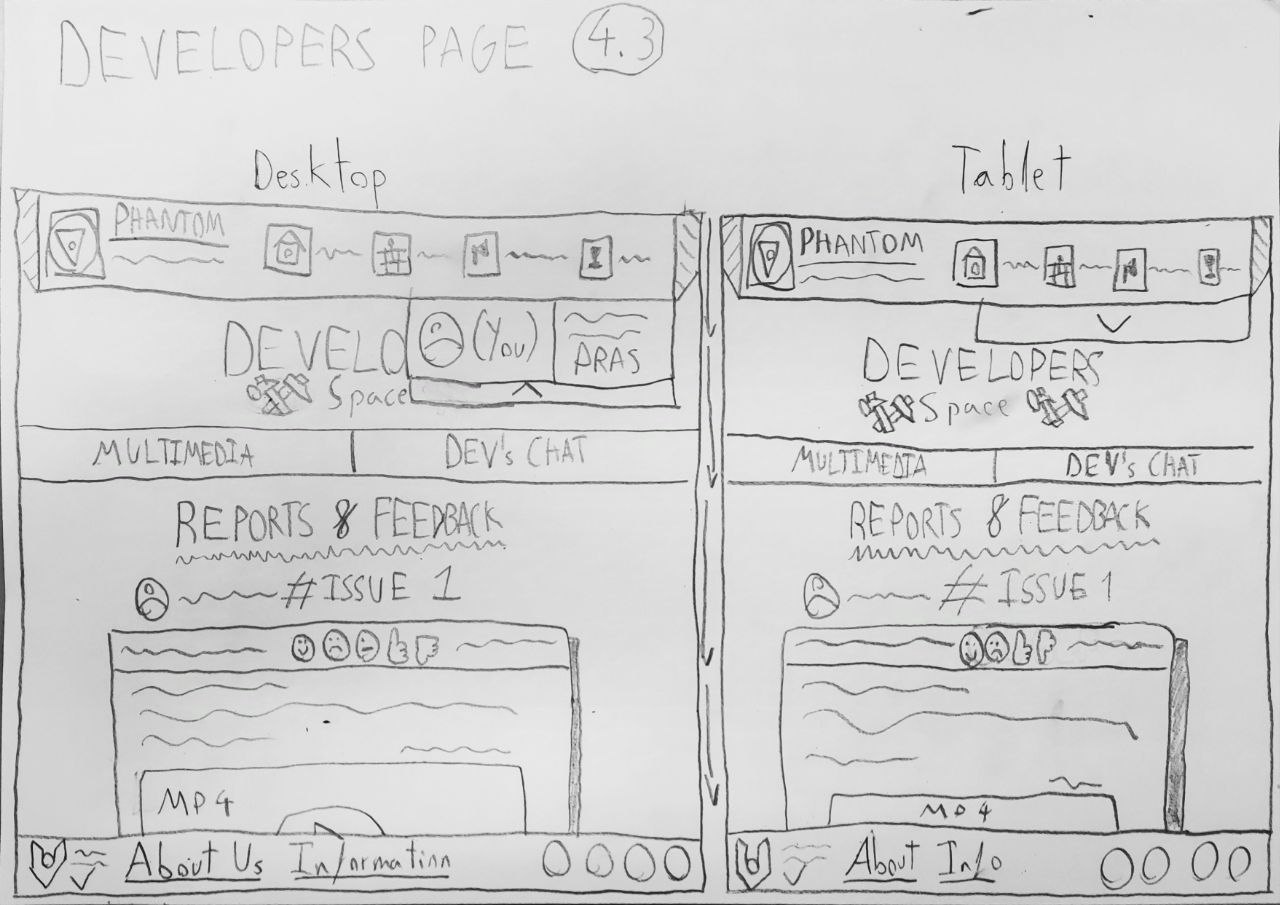 DEVELOPERS PAGE 4.3
Desktop
PHANTOM
DEVELO
(You)
ARAS
Space
MULTIMEDIA
DEV's CHAT
REPORTS & FEEDBACK
#ISSUE 1
MP4
About Us Information
Tablet
PHANTOM
DEVELOPERS
Space
MULTIMEDIA
DEV's CHAT
REPORTS & FEEDBACK
#ISSUE 1
MP4
About Info